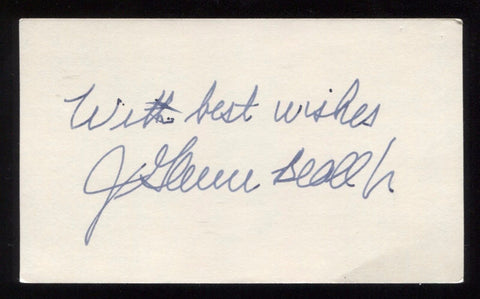 With best wishes
J Glenn Beall Jr